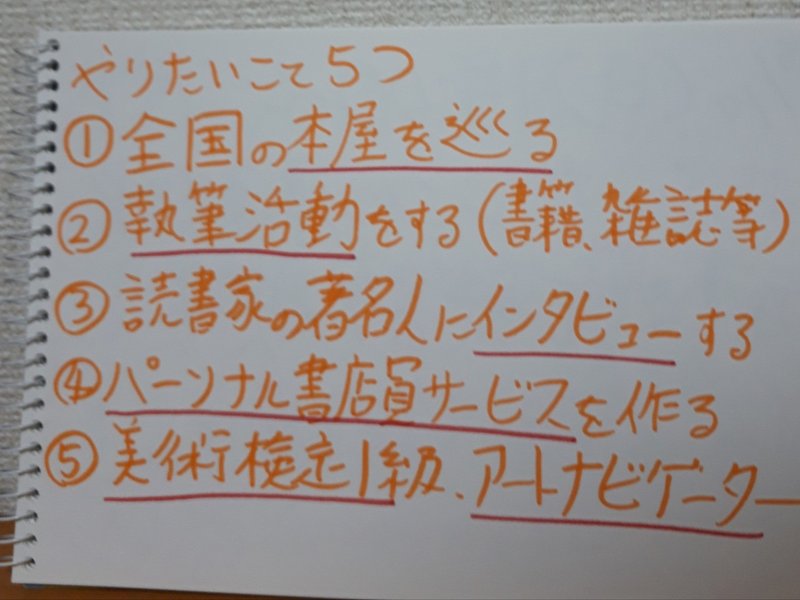 やりたいこと5つ
①全国の本屋を巡る
②執筆活動をする(書籍、雑誌等)
③読書家の著名人にインタビューする
④パーソナル書店員サービスを作る
⑤美術検定1級、アートナビゲーター